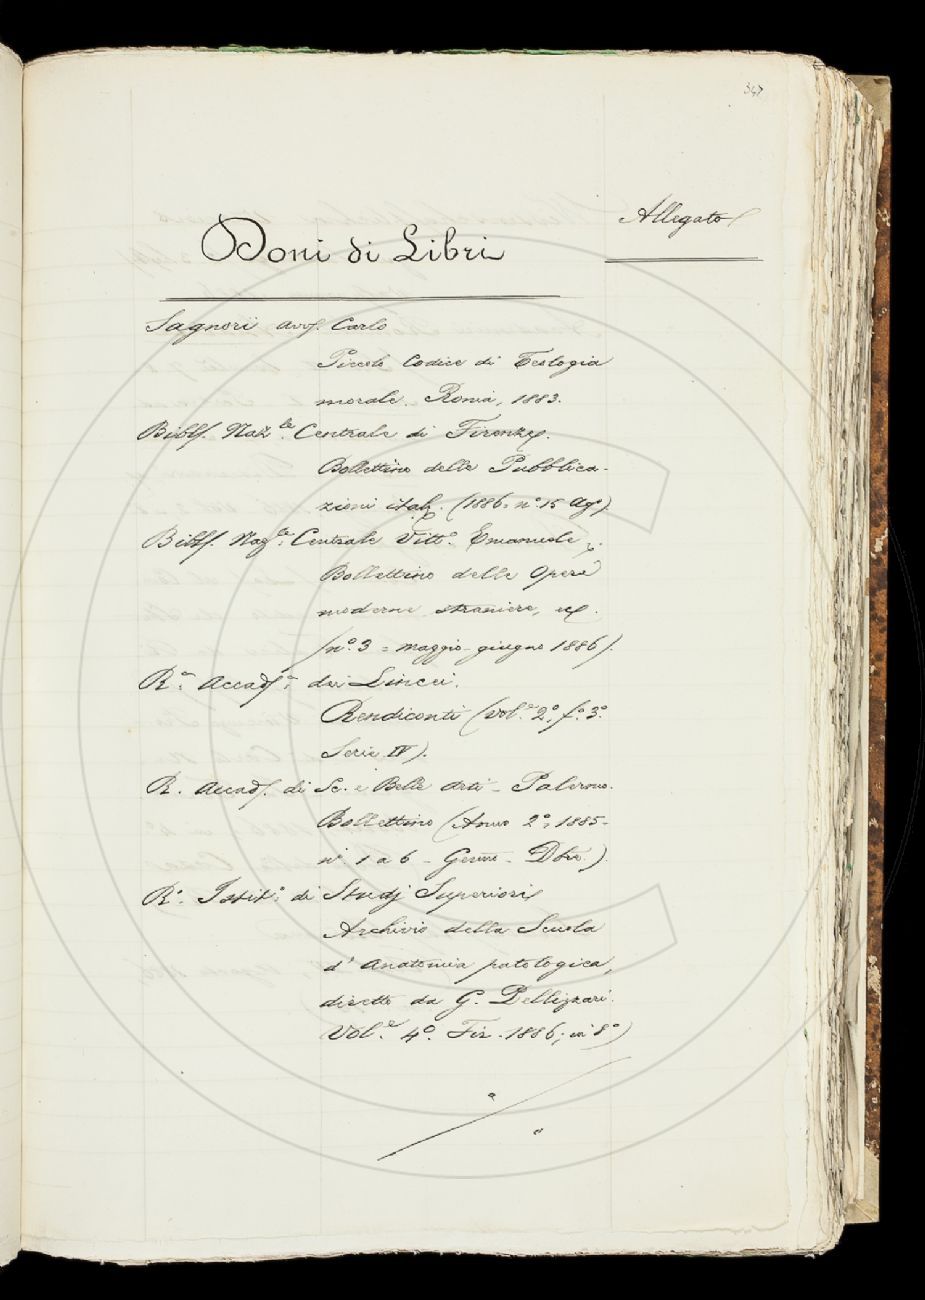 Allegato
Doni di Libri
Sagnori avv. Carlo
Piccolo Codice di Teologia
morale. Roma, 1883.
Bibl. Naz.le Centrale di Firenze.
Bollettino delle Pubblica-
zioni ital. (1886, n.º 15 Ag.º)
Bibl. Naz.le Centrale Vitt.º Emanuele
Bollettino delle Opere
moderne straniere, ec.
(n.º 3 = maggio-giugno 1886).
R.ª Accad.ª dei Lincei.
Rendiconti (Vol.e 2º, f.º 3º.
Serie IV).
R. Accad. di Sc. e Belle Arti - Palermo.
Bollettino (Anno 2º, 1885-
n.i 1 a 6 - Genn.º - Dbre.).
R.º Istit.º di Studj Superiori
Archivio della Scuola
d'Anatomia patologica,
diretto da G. Pellizzari.
Vol.e 4º. Fir. 1886; in 8º)